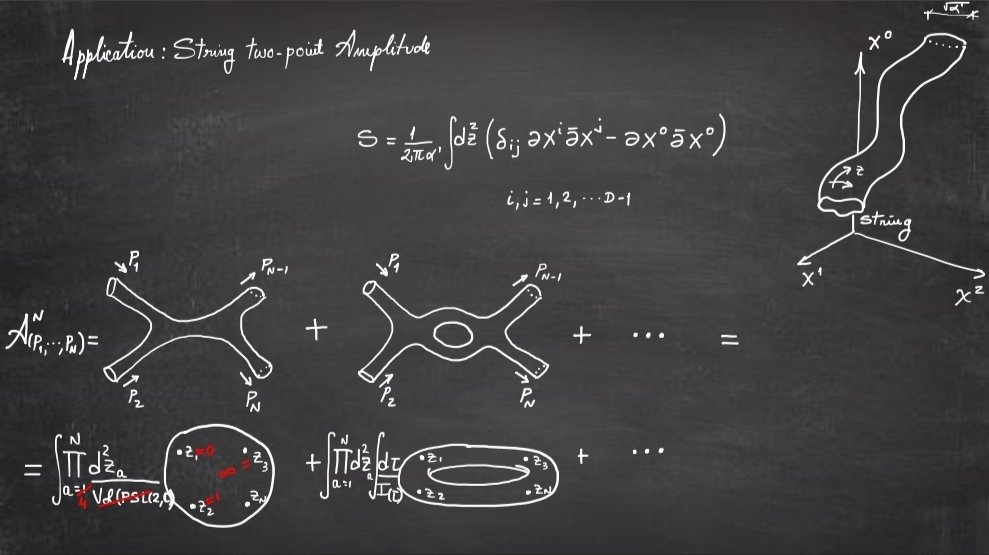 Application: String two-point Amplitude
√α'
X⁰
S = 1/2πα' ∫d²z (δij ∂Xⁱ∂̄Xʲ - ∂X⁰∂̄X⁰)
i,j = 1,2, ... D-1
z
string
X¹
X²
P₁ P_{N-1} P₁ P_{N-1}
A^N(P₁,...,P_N) = + + ... =
P₂ P_N P₂ P_N
= ∫ ∏_{a=1}^{N} d²z_a / Vol(PSL(2, z₁=0 ∞=z₃ z₂=1 z_N + ∫ ∏_{a=1}^{N} d²z_a ∫ dτ/I(τ) z₁ z₂ z₃ z_N + ...
4